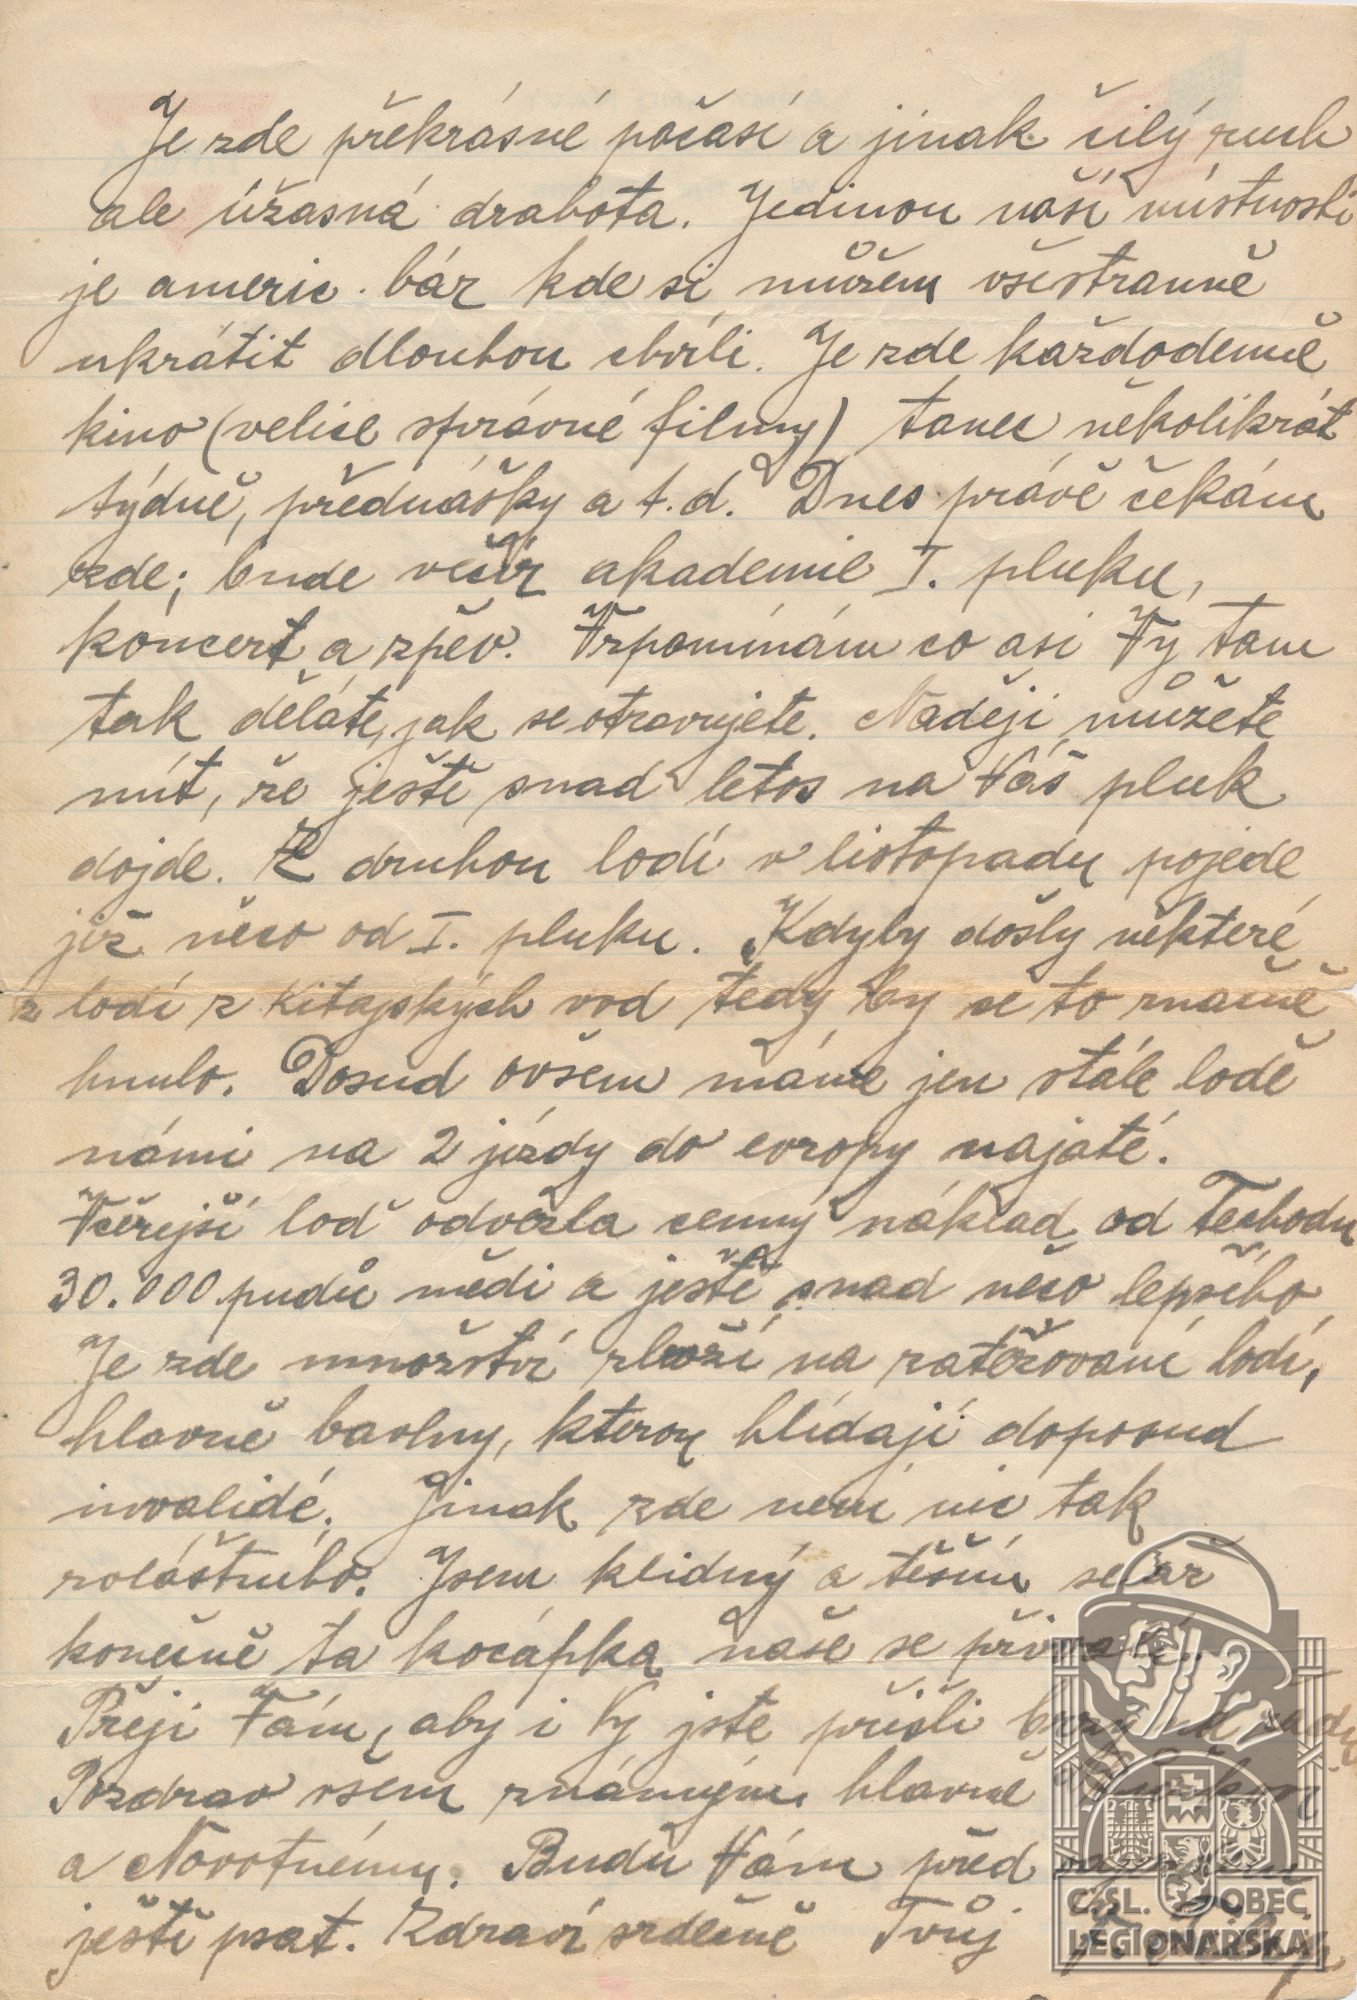 Je zde překrásné počasí a jinak čilý ruch
ale úžasná drahota. Jedinou naší místností
je americ. bár kde si můžem všestranně
ukrátit dlouhou chvíli. Je zde každodenně
kino (velice správné filmy) tanec několikrát
týdně, přednášky a t. d. Dnes právě čekám
zde; bude večír akademie I. pluku,
koncert a zpěv. Vzpomínám co asi Vy tam
tak děláte, jak se otravujete. Naději můžete
mít, že ještě snad letos na Váš pluk
dojde. Z druhou lodí v listopadu pojede
již něco od I. pluku. Kdyby došly některé
z lodí z Kitajských vod tedy by se to značně
hnulo. Dosud ovšem máme jen stále lodě
námi na 2 jízdy do evropy najaté.
Včerejší loď odvezla cenný náklad od Techodu
30.000 pudů mědi a ještě snad něco lepšího
Je zde množství zboží na zatěžovaní lodí,
hlavně bavlny, kterou hlídají doposud
invalidé. Jinak zde není nic tak
zvláštního. Jsem klidný a těším se až
konečně ta kocápka naše se
Přeji Vám, aby i Vy jste přišli brzy na řadu
Pozdrav všem známým hlavně
a Novotnému. Budu Vám před
ještě psat. Zdraví srdečně Tvůj
ČSL. OBEC
LEGIONÁŘSKÁ